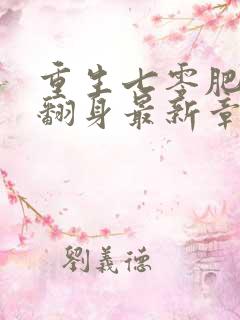 重生七零肥
翻身最新章
劉義德